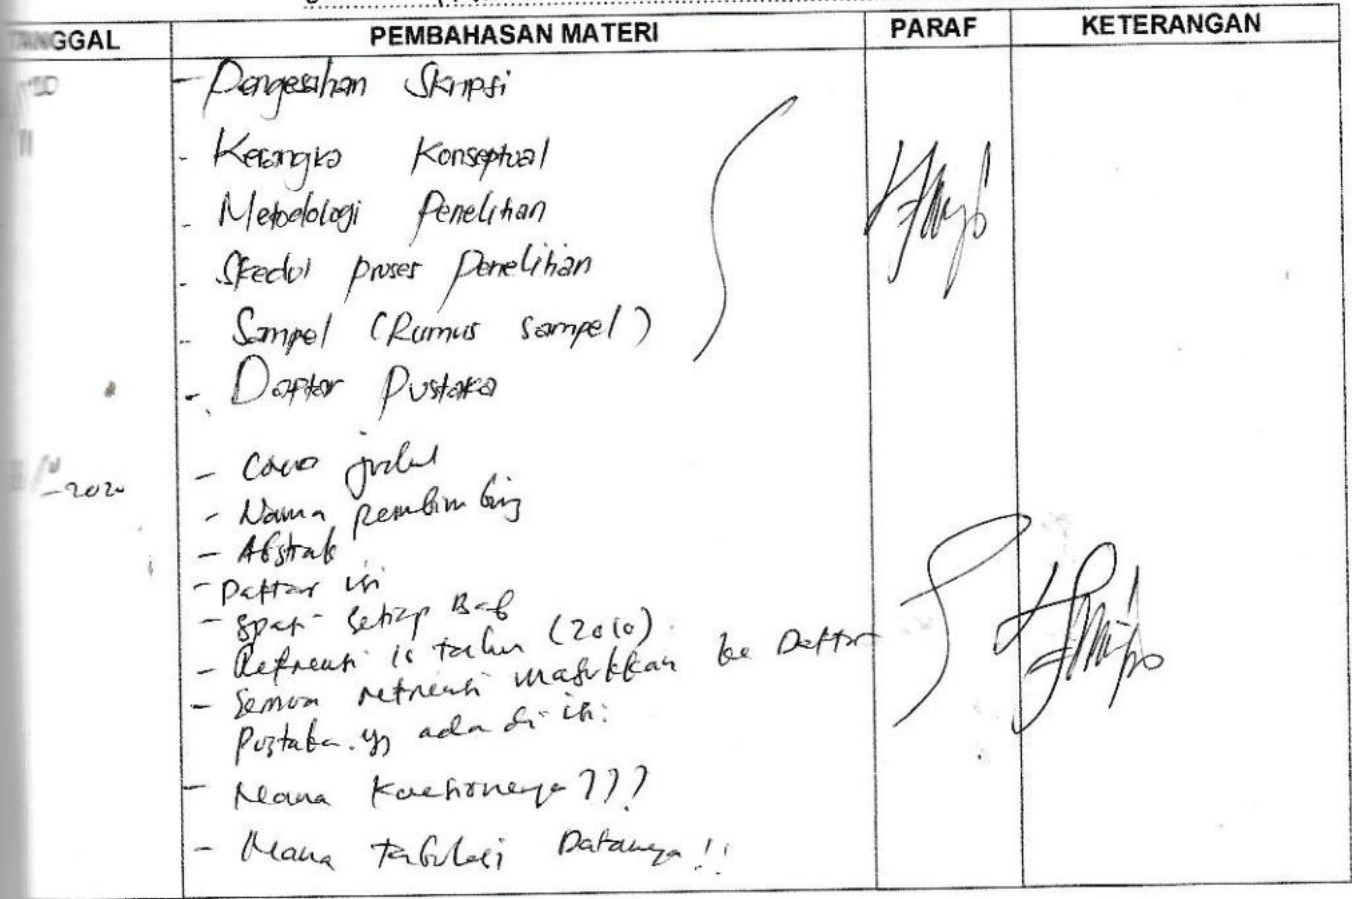 TANGGAL PEMBAHASAN MATERI PARAF KETERANGAN
- Pengesahan Skripsi
- Kerangka Konseptual
- Metodologi Penelitian
- Skedul proses Penelitian
- Sampel (Rumus sampel)
- Daftar Pustaka
-2020
- Cover judul
- Nama pembimbing
- Abstrak
- Daftar isi
- Spasi setiap Bab
- Refrensi 10 tahun (2010)
- Semua refrensi masukkan ke Daftar
Pustaka. yg ada di isi.
- Mana Kuesionernya ???
- Mana tabulasi Datanya !!